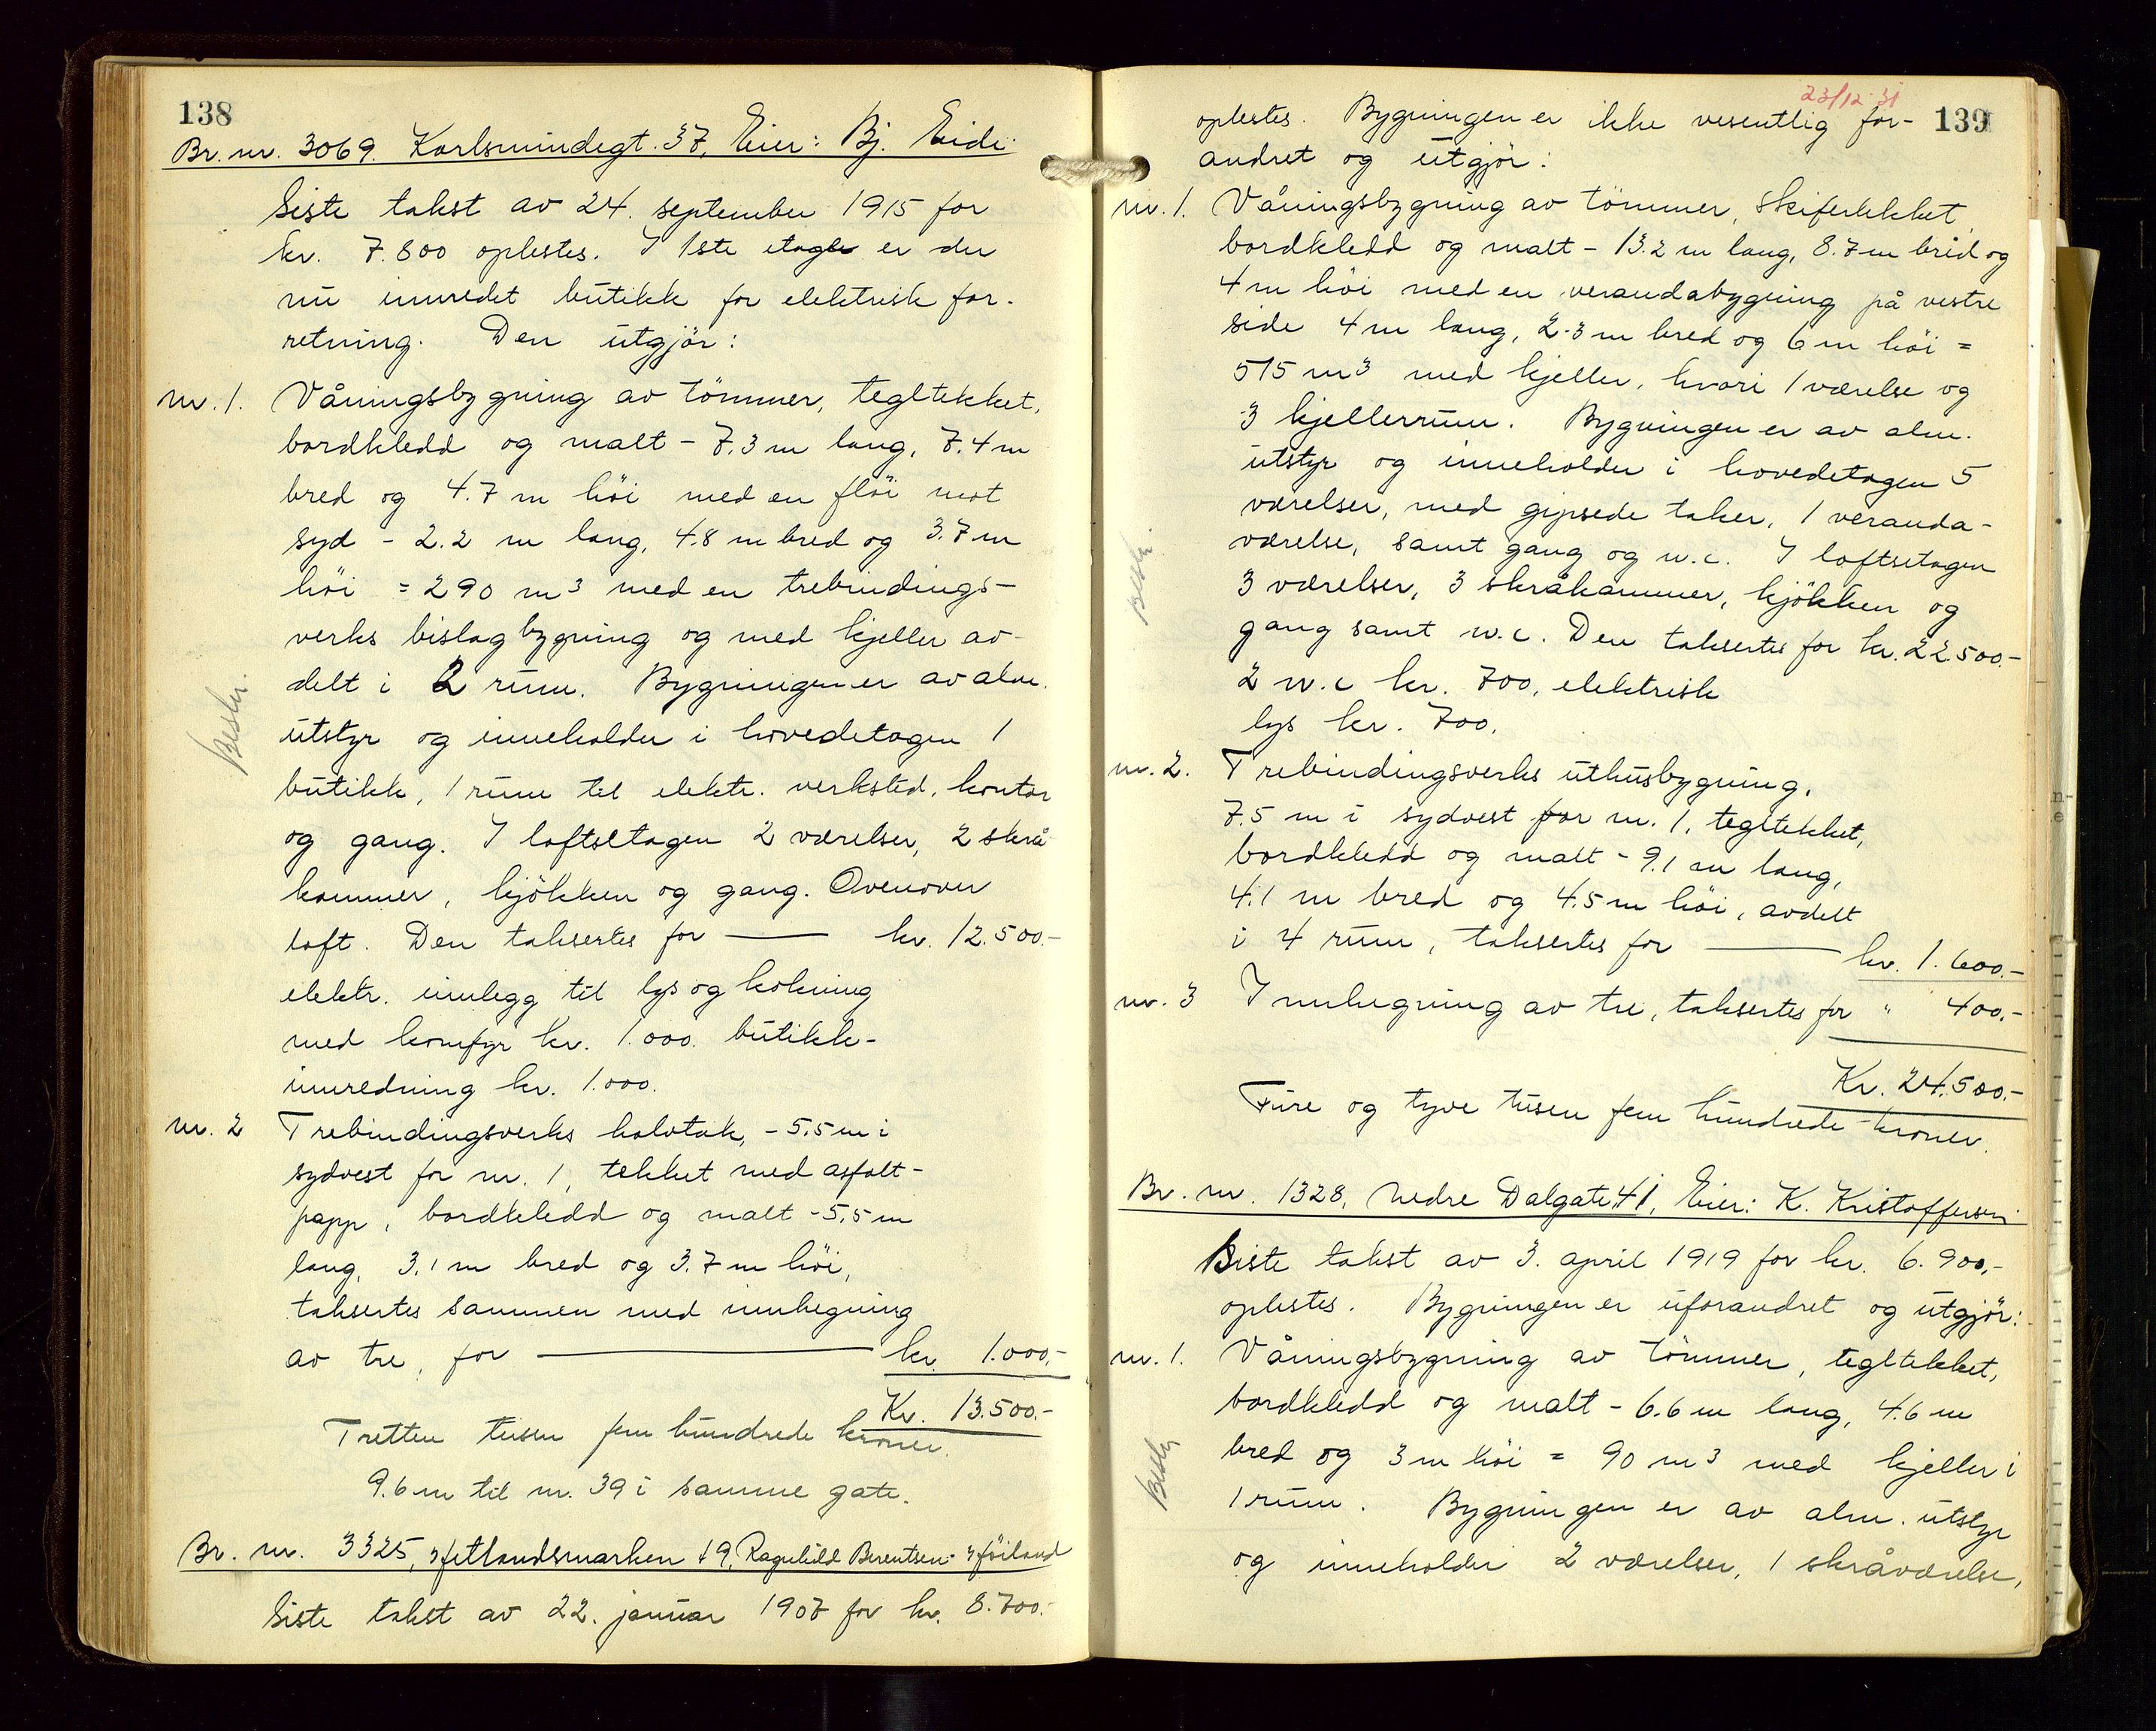 138
Br. nr. 3069. Karlsmindegt. 37, Eier: Bj. Eide.
Siste takst av 24. september 1915 for
kr. 7.800 oplestes. I 1ste etage er der
nu innredet butikk for elektrisk for-
retning. Den utgjör:
nr. 1. Våningsbygning av tömmer, tegltekket,
bordkledd og malt - 7.3 m lang, 7.4 m
bred og 4.7 m höi med en flöi mot
syd - 2.2 m lang, 4.8 m bred og 3.7 m
höi = 290 m3 med en trebindings-
verks bislagbygning og med kjeller av-
delt i 2 rum. Bygningen er av alm.
utstyr og inneholder i hovedetagen 1
butikk, 1 rum til elektr. verksted, kontor
og gang. I loftsetagen 2 værelser, 2 skrå-
kammer, kjökken og gang. Ovenover
loft. Den taksertes for — kr. 12.500.-
elektr. innlegg til lys og kokning
med komfyr kr. 1.000. butikk-
innredning kr. 1.000.
nr. 2 Trebindingsverks halvtak, - 5.5 m i
sydvest for nr. 1, tekket med asfalt-
papp, bordkledd og malt - 5,5 m
lang, 3.1 m bred og 3.7 m höi,
taksertes sammen med innhegning
av tre, for — kr. 1.000.-
Kr. 13.500.-
Tretten tusen fem hundrede kroner.
9.6 m til nr. 39 i samme gate.
Beskr.
Br. nr. 3325, Hetlandsmarken 49, Ragnhild Berentsen-Höiland
Siste takst av 22. januar 1907 for kr. 8.700.-
23/12 31
139
oplestes. Bygningen er ikke vesentlig for-
andret og utgjör:
nr. 1. Våningsbygning av tömmer, skifertekket,
bordkledd og malt - 13.2 m lang, 8.7 m bred og
4 m höi med en verandabygning på vestre
side 4 m lang, 2.3 m bred og 6 m höi =
515 m3 med kjeller, hvori 1 værelse og
3 kjellerrum. Bygningen er av alm.
utstyr og inneholder i hovedetagen 5
værelser, med gipsede taker, 1 veranda-
værelse, samt gang og w.c. I loftsetagen
3 værelser, 3 skråkammer, kjökken og
gang samt w.c. Den taksertes for kr. 22.500.-
2 w.c kr. 700, elektrisk
lys kr. 700.
Beskr.
nr. 2. Trebindingsverks uthusbygning,
7.5 m i sydvest for nr. 1, tegltekket,
bordkledd og malt - 9.1 m lang,
4.1 m bred og 4.5 m höi, avdelt
i 4 rum, taksertes for — kr. 1.600.-
nr. 3 Innhegning av tre, taksertes for " 400.-
Kr. 24.500.-
Fire og tyve tusen fem hundrede kroner.
Br. nr. 1328, Nedre Dalgate 41, Eier: K. Kristoffersen.
Siste takst av 3. april 1919 for kr. 6.900.-
oplestes. Bygningen er uforandret og utgjör:
nr. 1. Våningsbygning av tömmer, tegltekket,
bordkledd og malt - 6.6 m lang, 4.6 m
bred og 3 m höi = 90 m3 med kjeller i
1 rum. Bygningen er av alm. utstyr
og inneholder 2 værelser, 1 skråværelse,
Beskr